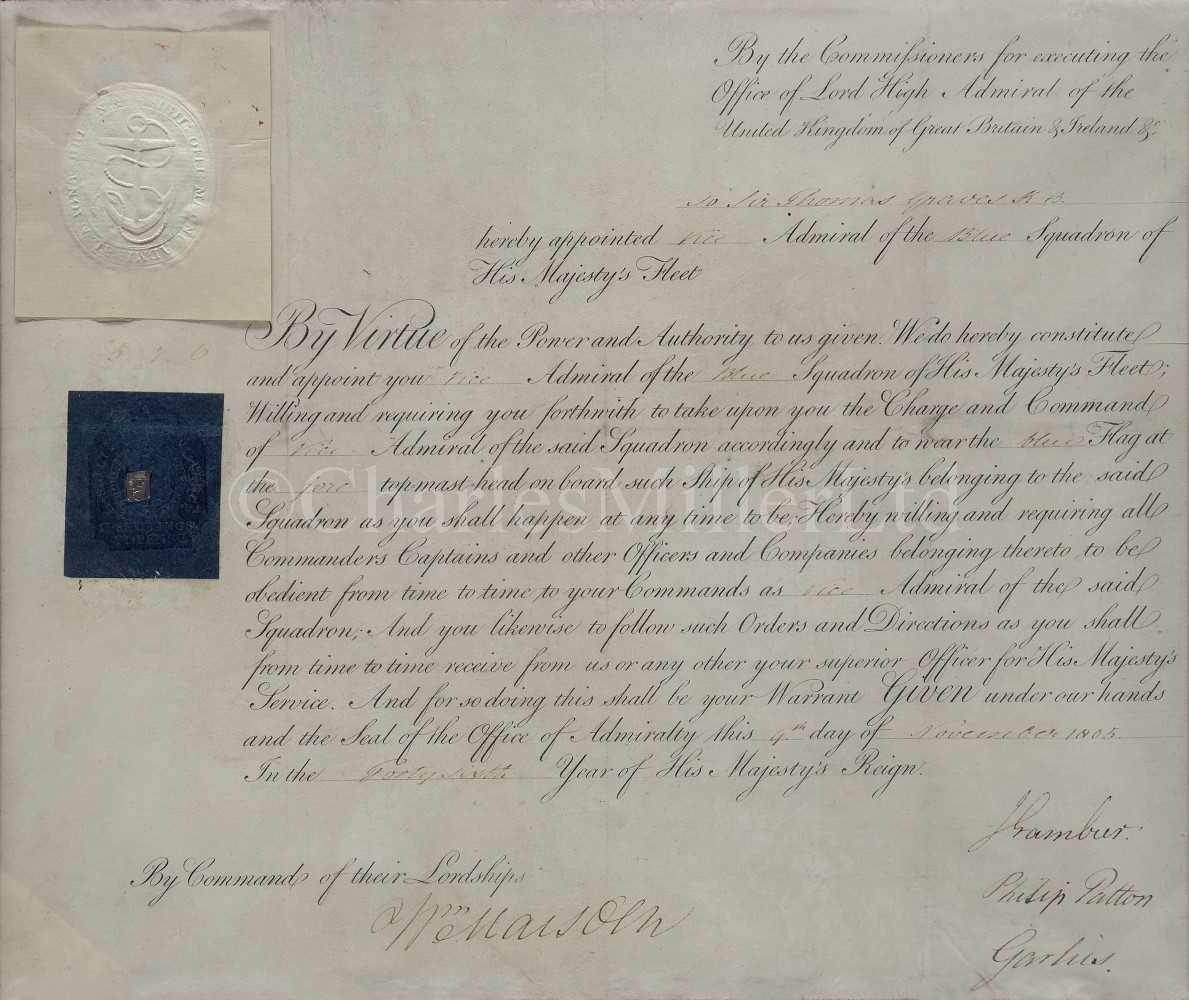 By the Commiſsioners for executing the
Office of Lord High Admiral of the
United Kingdom of Great Britain & Ireland &c.
To Sir Thomas Graves K.B.
hereby appointed Vice Admiral of the Blue Squadron of
His Majesty's Fleet
By Virtue of the Power and Authority to us given. We do hereby constitute
and appoint you Vice Admiral of the Blue Squadron of His Majesty's Fleet;
Willing and requiring you forthwith to take upon you the Charge and Command
of Vice Admiral of the said Squadron accordingly and to wear the blue Flag at
the fore topmast-head on board such Ship of His Majesty's belonging to the said
Squadron as you shall happen at any time to be; Hereby willing and requiring all
Commanders Captains and other Officers and Companies belonging thereto to be
obedient from time to time to your Commands as Vice Admiral of the said
Squadron; And you likewise to follow such Orders and Directions as you shall
from time to time receive from us or any other your superior Officer for His Majesty's
Service. And for so doing this shall be your Warrant Given under our hands
and the Seal of the Office of Admiralty this 9th day of November 1805.
In the Forty Sixth Year of His Majesty's Reign.
Gambier.
By Command of their Lordships
Philip Patton
Wm Marsden
Garlies.
©CharlesMillerLtd